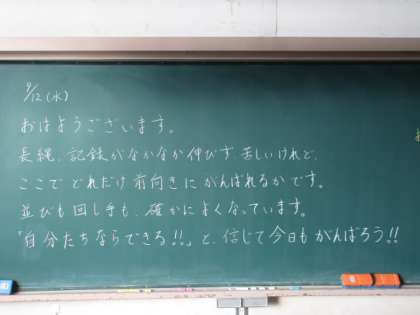 9/12(水)
おはようございます。
長縄、記録がなかなか伸びず、苦しいけれど、
ここで どれだけ 前向きに がんばれるか です。
並びも 回し手も、確かに よくなっています。
「自分たちならできる!!」と、信じて今日も がんばろう!!